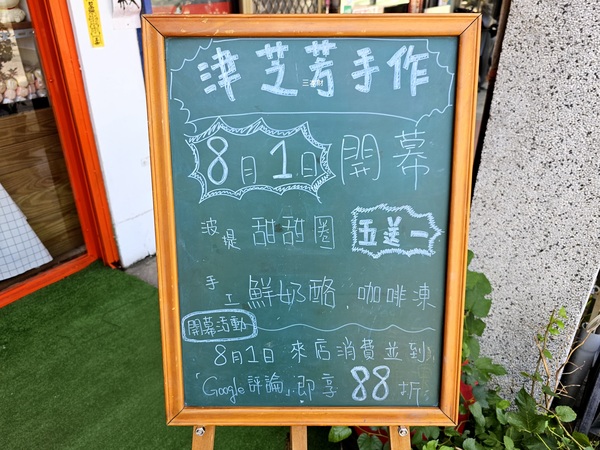 津芝芳手作
8月1日開幕
波堤甜甜圈 五送一
手工鮮奶酪、咖啡凍
開幕活動
8月1日來店消費並到
「Google評論」即享88折